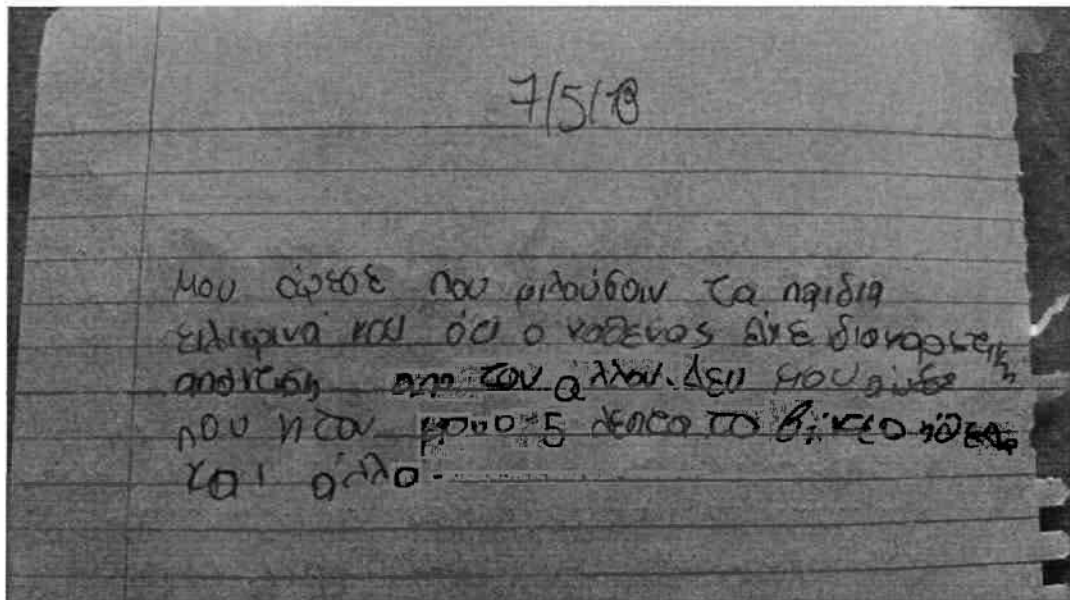 7/5/18
Μου άρεσε που μιλούσαν τα παιδια
ειλικρινά και ότι ο καθένας είχε
απάντηση απο του άλλου. Δεν μου
που ήταν μονο 5 λεπτα το βίντεο ήθελα
και άλλο.